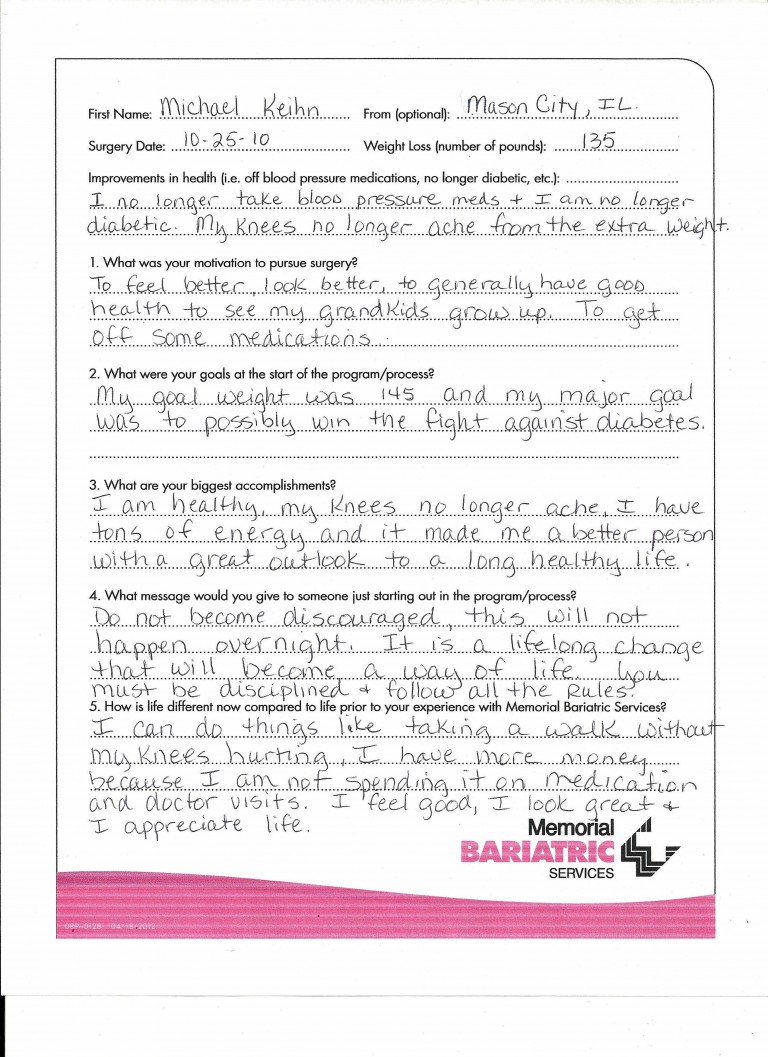 First Name: Michael Keihn From (optional): Mason City, IL.
Surgery Date: 10-25-10 Weight Loss (number of pounds): 135
Improvements in health (i.e. off blood pressure medications, no longer diabetic, etc.):
I no longer take blood pressure meds + I am no longer
diabetic. My Knees no longer ache from the extra weight.
1. What was your motivation to pursue surgery?
To feel better, look better, to generally have good
health to see my grandkids grow up. To get
off some medications.
2. What were your goals at the start of the program/process?
My goal weight was 145 and my major goal
was to possibly win the fight against diabetes.
3. What are your biggest accomplishments?
I am healthy, my Knees no longer ache, I have
tons of energy and it made me a better person
with a great outlook to a long healthy life.
4. What message would you give to someone just starting out in the program/process?
Do not become discouraged, this will not
happen overnight. It is a lifelong change
that will become a way of life. You
must be disciplined + follow all the Rules.
5. How is life different now compared to life prior to your experience with Memorial Bariatric Services?
I can do things like taking a walk without
my Knees hurting, I have more money
because I am not spending it on medication
and doctor visits. I feel good, I look great +
I appreciate life.
Memorial
BARIATRIC
SERVICES
069-0128 04/18/2012